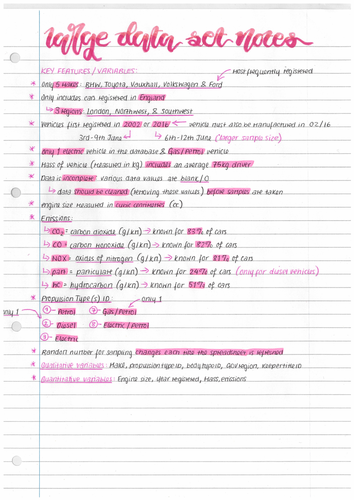 large data set notes
KEY FEATURES / VARIABLES:
most frequently registered
* Only 5 makes: BMW, Toyota, Vauxhall, Volkswagen & Ford
* Only includes cars registered in England
↳ 3 Regions: London, Northwest, & Southwest
* Vehicles first registered in 2002 or 2016 ← vehicle must also be manufactured in 02/16
3rd-9th June ↲ ↳ 6th-12th June (larger sample size)
* Only 1 electric vehicle in the database & Gas/Petrol vehicle
* Mass of vehicle (measured in kg) includes an average 75kg driver
* Data is incomplete: various data values are blank/0
↳ data should be cleaned (removing those values) before samples are taken
* engine size measured in cubic centimetres (cc)
* Emissions:
↳ CO₂ = carbon dioxide (g/km) → known for of cars
↳ CO = carbon monoxide (g/km) → known for of cars
↳ NOX = oxides of nitrogen (g/km) → known for 81% of cars
↳ part = particulate (g/km) → known for 24% of cars (only for diesel vehicles)
↳ hc = hydrocarbon (g/km) → known for 51% of cars
* Propulsion Type(s) ID: only 1
only 1 ① - Petrol ⑦ - Gas/Petrol
② - Diesel ⑧ - Electric/Petrol
③ - Electric
* Random number for sampling changes each time the spreadsheet is reopened
* Qualitative variables: Make, propulsiontypeID, bodytypeID, GOVregion, KeepertitleID
* Quantitative variables: Engine size, year registered, Mass, emissions